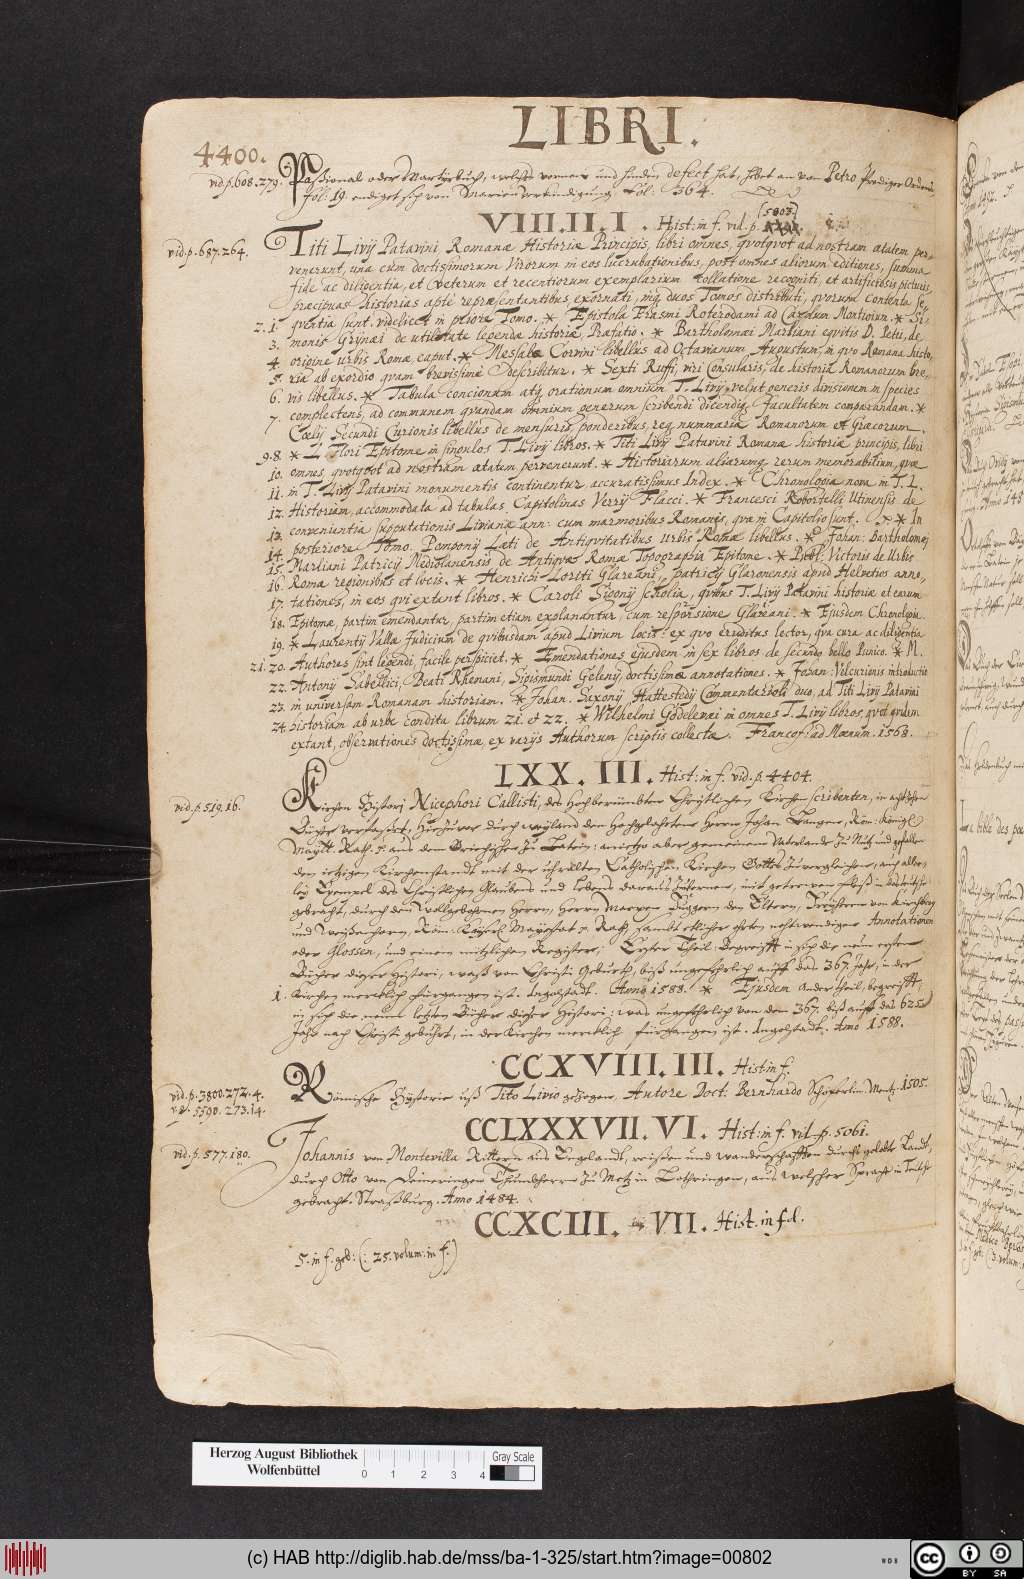 LIBRI.
4400.
vid p. 608. 279. Passional oder Martyrbuch, welchs vornen und hinden defect hat, hebet an von Petro Prediger Ordens,
fol: 19. endiget sich von Marien verkündigung fol: 364.
VIIII.II.I. Hist: in f. vid. p. 5803.
vid. p. 687. 264. Titi Livij Patavini Romanæ Historiæ Principis, libri omnes, quotquot ad nostram ætatem per-
venerunt, una cum doctissimorum Virorum in eos lucubrationibus, post omnes aliorum editiones, summa
fide ac diligentia, et veterum et recentiorum exemplarium collatione recogniti, et artificiosis picturis,
præcipuas historias apte repræsentantibus, exornati, inq duos Tomos distributi, quorum contenta se,
2. 1. quentia sunt. videlicet in priore Tomo. * Epistola Erasmi Roterodami ad Carolum Montioium. * Si,
3. monis Grÿnæi de utilitate legendæ historiæ, Præfatio. * Bartholomæi Marliani equitis D. Petri, de
4. origine urbis Romæ caput. * Messalæ Corvini libellus ad Octavianum Augustum, in quo Romana histo,
5. ria ab exordio quam brevissime describitur. * Sexti Ruffi, viri Consularis, de historia Romanorum bre,
6. vis libellus. * Tabula concionum atq orationum omnium T. Livij, velut generis divisionem in species
7. complectens, ad communem quendam omnium generum scribendi dicendiq facultatem comparandam. *
Cælij Secundi Curionis libellus de mensuris, ponderibus, req nummaria Romanorum et Græcorum.
9. 8. * L. Flori Epitome in singulos T. Livij libros. * Titi Livij Patavini Romanæ historiæ principis, libri
10. omnes quotquot ad nostram ætatem pervenerunt. * Historiarum aliarumq rerum memorabilium, quæ
11. in T. Livij Patavini monumentis continentur accuratissimus Index. * Chronologia nova in T. L.
12. Historiam, accommodata ad tabulas Capitolinas Verrij Flacci. * Francisci Robortelli Utinensis de
13. convenientia supputationis Livianæ ann: cum marmoribus Romanis, quæ in Capitolio sunt. * In
14. posteriore Tomo. Pomponij Læti de Antiquitatibus Urbis Romæ libellus. * Johan: Bartholomej
15. Marliani Patricij Mediolanensis de Antiquæ Romæ Topographia Epitome. * Publ: Victoris de Urbis
16. Romæ regionibus et locis. * Henrichi Loriti Glareani, patricij Glaronensis apud Helvetios anno,
17. tationes, in eos qui extant libros. * Caroli Sigonij scholia, quibus T. Livij Patavini historiæ et earum
18. Epitomæ, partim emendantur, partim etiam explanantur, cum responsione Glareani. * Ejusdem Chronologia.
19. * Laurentij Vallæ Judicium de quibusdam apud Livium locis: ex quo eruditus lector, qua cura ac diligentia
21. 20. Authores sint legendi, facile perspiciet. * Emendationes ejusdem in sex libros de secundo bello Punico. * M.
22. Antonij Sabellici, Beati Rhenani, Sigismundi Gelenij doctissimæ annotationes. * Johan: Velcurionis introductio
23. in universam Romanam historiam. * Johan. Saxonij Hattestedij Commentarioli duo, ad Titi Livij Patavini
24. historiam ab urbe condita librum 21. et 22. * Wilhelmi Godelevæi in omnes T. Livij libros, quot quidem
extant, observationes doctissimæ, ex varijs Authorum scriptis collectæ. Francof: ad Mœnum. 1568.
LXX. III. Hist: in f. vid. p. 4404.
vid. p. 519. 16. Kirchen Histori Nicephori Callisti, des Hochberümbten Christlichen Kirchen scribenten, in achtzehen
Bücher verfasset, Hiezuvor durch weÿland den Hochgelehrten Herrn Johan Langen, Röm: Königl:
Maÿtt. Rath. auß dem Griechischen zu Latein: anietzo aber gemeinem Vaterlande zu Nutz und gefallen
den ietzigen Kirchenstandt mit der uhralten Catholischen Kirchen Gottes zuvergleichen, auch aller,
leÿ Exempel des Christlichen Glaubens und Lebens daraus zulernen, mit getrewem fleiß in
gebracht, durch den Wollgebohrnen Herrn, Herrn Marxen Fuggern den Eltern, Freÿherrn von Kirchberg
und Weißenhorn, Röm: Kaÿserl: Maÿestat Rath, sambt etlicher ohrten nohtwendiger Annotationen
oder Glossen, und einem nützlichen Register, Erster Theil: Begreifft in sich die neun ersten
Bücher dieser Histori, waß von Christi Geburth, biß ungefehrlich auff das 367. Jahr, in der
1. Kirchen mercklich fürgangen ist. Ingolstadt. Anno 1588. * Ejusdem ander theil, begreifft,
in sich die neun letzten Bücher dieser Histori: was ungefehrlich von dem 367. biß auff das 625
Jahr nach Christi gebuhrt, in der Kirchen mercklich fürgangen ist. Ingolstadt. Anno 1588.
CCXVIII. III. Hist: in f.
vid. p. 3800. 272. 4.
5590. 273. 14. Römische Historie uß Tito Livio gezogen. Autore Doct. Bernhardo Schöferlin. Mentz. 1505.
CCLXXXVII. VI. Hist: in f. vid. p. 5061.
vid. p. 577. 180. Johannis von Montevilla Ritters aus Engelandt, reisen und wanderschafften durch gelobte Landt,
durch Otto von Demeringen Thumbherrn zu Metz in Lothringen, aus welscher Sprache in Teutsch
gebracht. Straßburg. Anno 1484.
CCXCIII. VII. Hist. in fol.
5. in f. geb: (: 25. volum: in f.)
Herzog August Bibliothek
Wolfenbüttel
0 1 2 3 4
Gray Scale
(c) HAB http://diglib.hab.de/mss/ba-1-325/start.htm?image=00802
WDB
cc BY SA